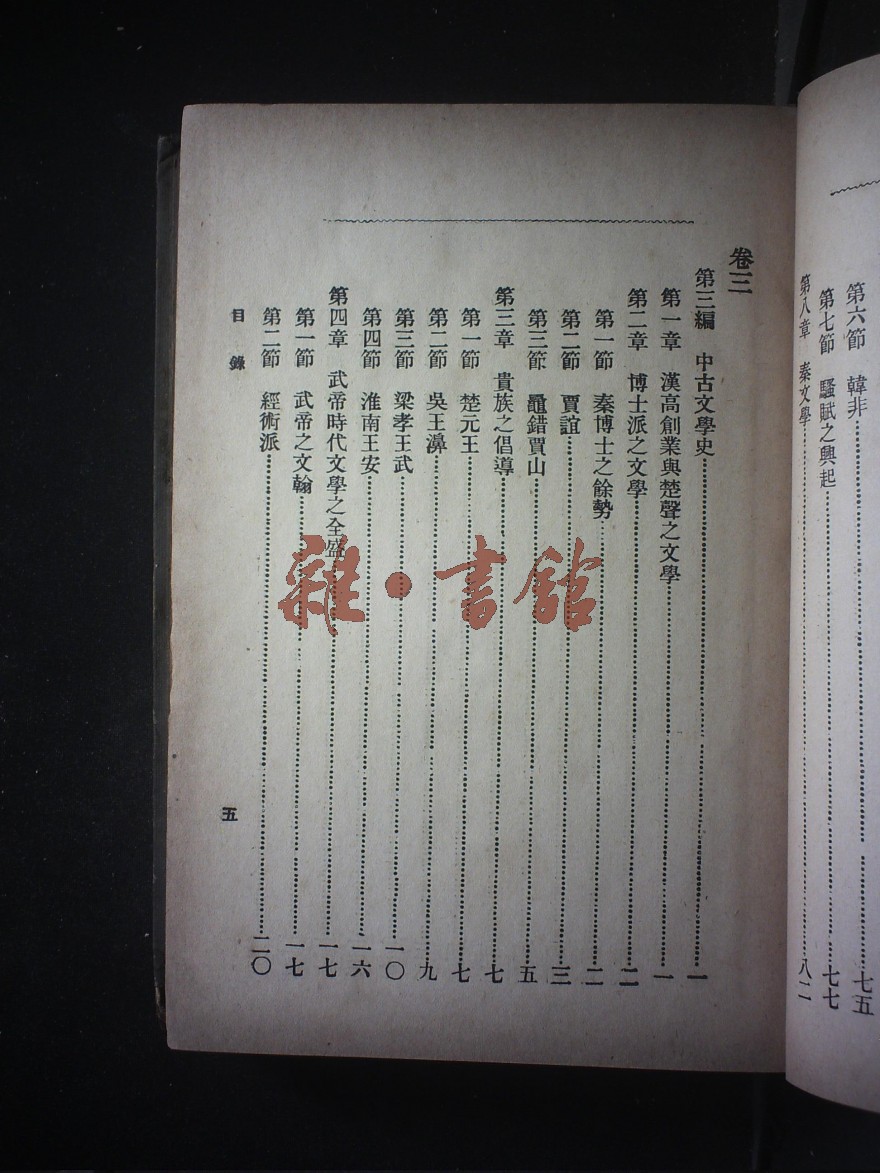 第六節　韓非……七五
第七節　騷賦之興起……七七
第八章　秦文學……八二
卷三
第三編　中古文學史……一
第一章　漢高創業與楚聲之文學……一
第二章　博士派之文學……二
第一節　秦博士之餘勢……二
第二節　賈誼……三
第三節　鼂錯賈山……五
第三章　貴族之倡導……七
第一節　楚元王……七
第二節　吳王濞……九
第三節　梁孝王武……一〇
第四節　淮南王安……一六
第四章　武帝時代文學之全盛……一七
第一節　武帝之文翰……一七
第二節　經術派……二〇
目錄
五
雜·書館